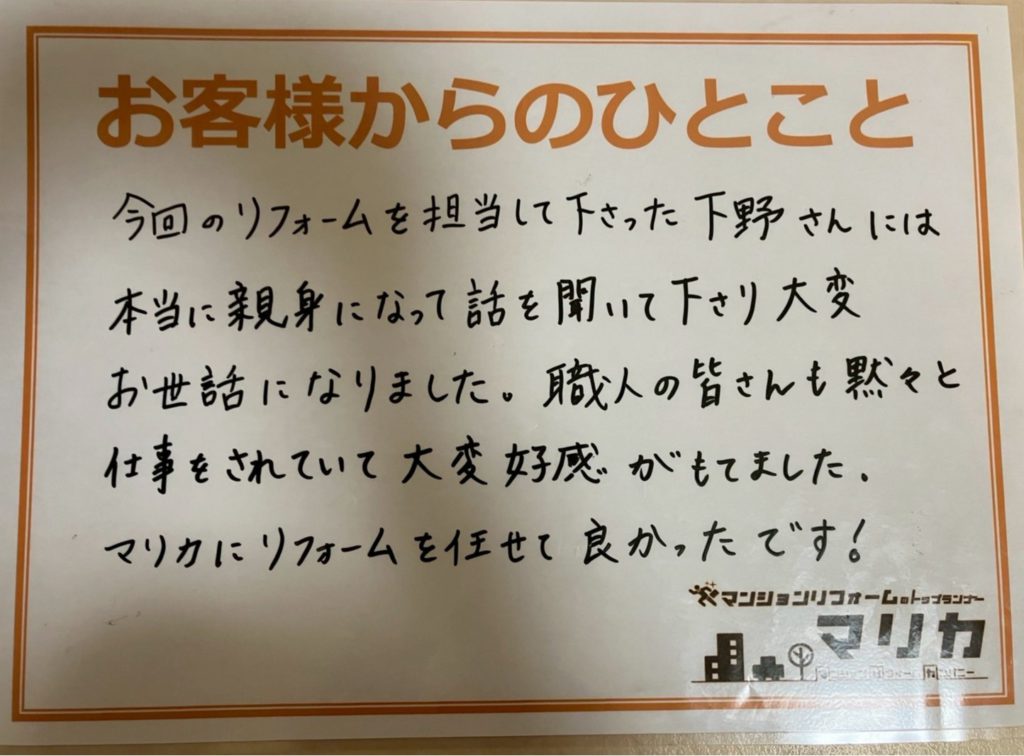 お客様からのひとこと
今回のリフォームを担当して下さった下野さんには
本当に親身になって話を聞いて下さり大変
お世話になりました。職人の皆さんも黙々と
仕事をされていて大変好感がもてました.
マリカにリフォームを任せて良かったです!
マンションリフォームのトップランナー
マリカ